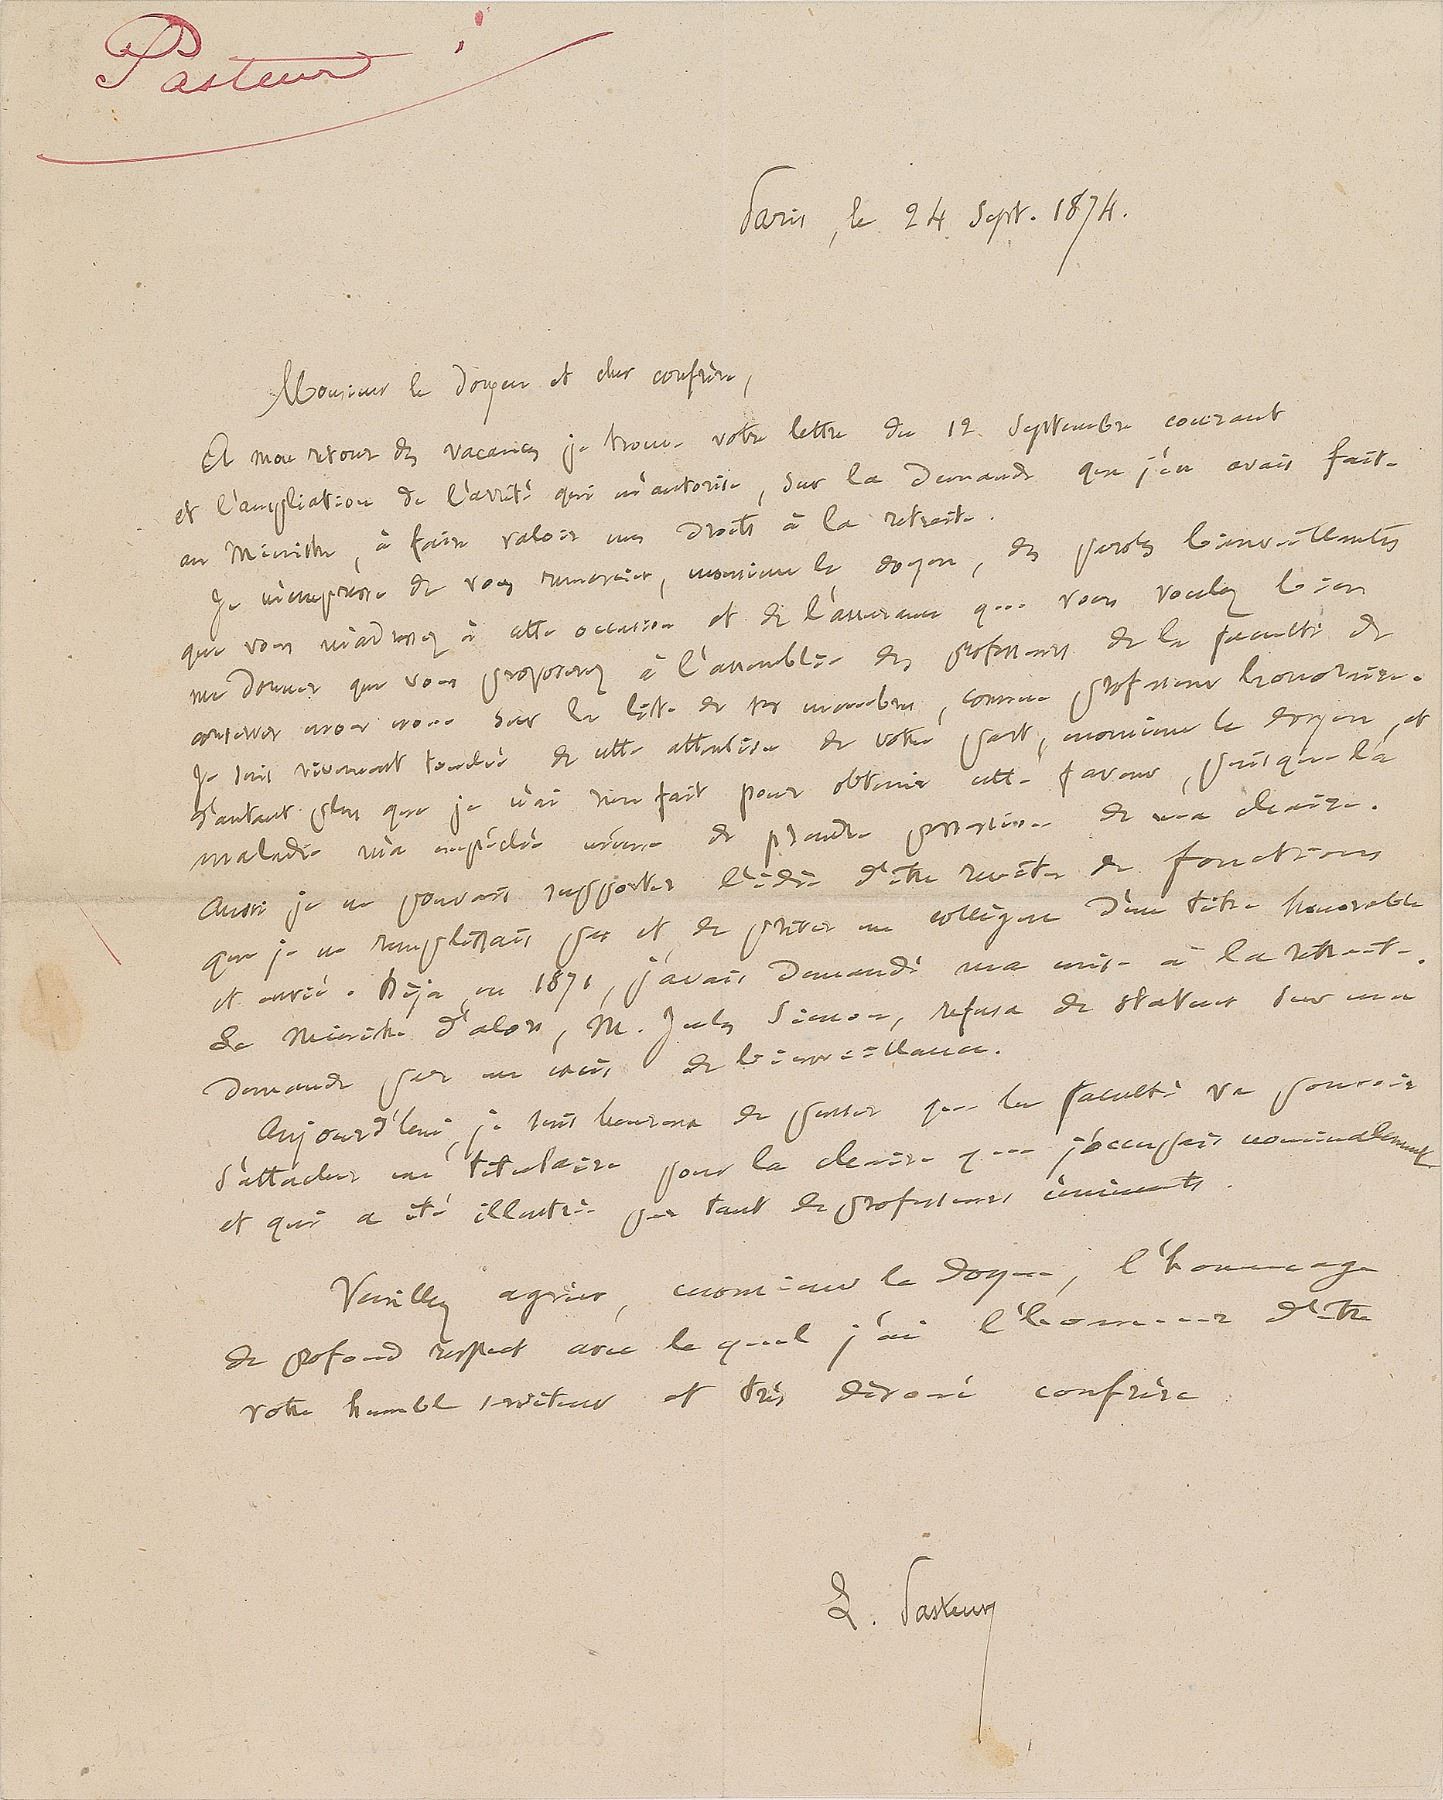 Pasteur
Paris, le 24 Sept. 1874.
Monsieur le Doyen et cher confrère,
A mon retour des vacances je trouve votre lettre du 12 Septembre courant
et l'ampliation de l'arrêté qui m'autorise, sur la demande que j'en avais faite
au Ministre, à faire valoir mes droits à la retraite.
Je m'empresse de vous remercier, monsieur le doyen, des paroles bienveillantes
que vous m'adressez à cette occasion et de l'assurance que vous voulez bien
me donner que vous proposerez à l'assemblée des professeurs de la faculté de
conserver mon nom sur la liste de ses membres, comme professeur honoraire.
Je suis vivement touché de cette attention de votre part, monsieur le doyen, et
d'autant plus que je n'ai rien fait pour obtenir cette faveur, puisque la
maladie m'a empêché même de prendre possession de ma chaire.
Aussi je ne pouvais supporter l'idée d'être revêtu de fonctions
que je ne remplissais pas et de priver un collègue d'un titre honorable
et envié. Déjà, en 1871, j'avais demandé ma mise à la retraite.
Le Ministre d'alors, M. Jules Simon, refusa de statuer sur ma
demande par un excès de bienveillance.
Aujourd'hui, je suis heureux de penser que la faculté va pouvoir
s'attacher un titulaire pour la chaire que j'occupais nominalement
et qui a été illustrée par tant de professeurs éminents.
Veuillez agréer, monsieur le Doyen, l'hommage
de profond respect avec lequel j'ai l'honneur d'être
votre humble serviteur et très dévoué confrère
L. Pasteur